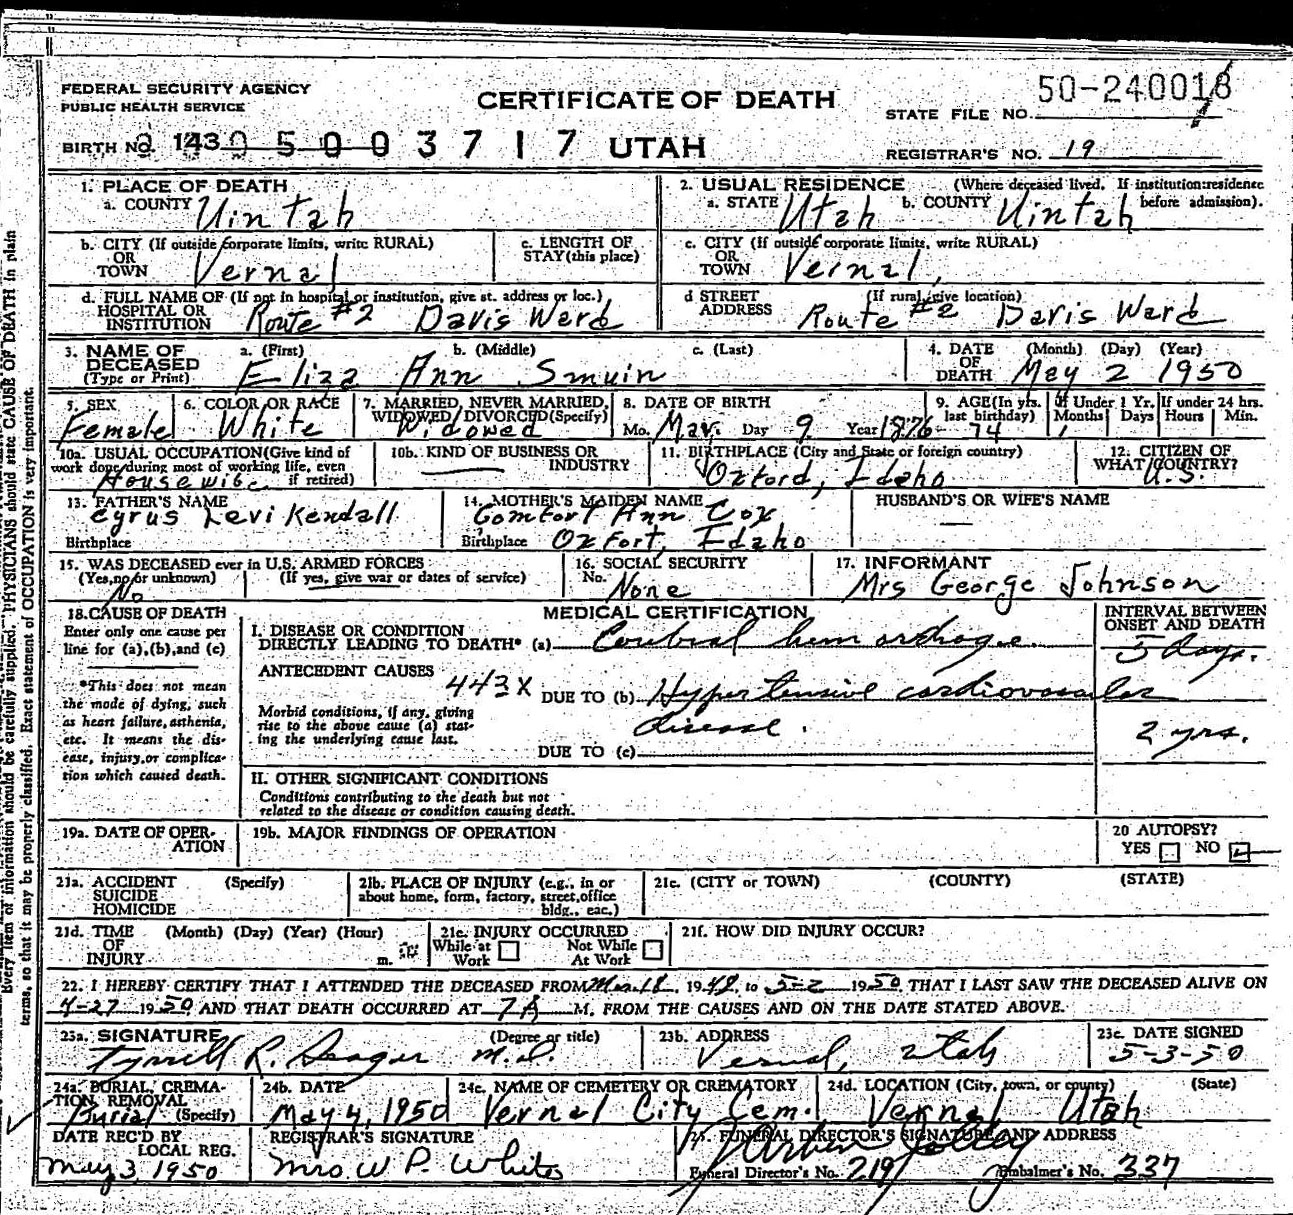 FEDERAL SECURITY AGENCY
PUBLIC HEALTH SERVICE
CERTIFICATE OF DEATH
STATE FILE NO. 50-240018
BIRTH NO. 143 0 5 0 0 3 7 1 7 UTAH
REGISTRAR'S NO. 19
1. PLACE OF DEATH
a. COUNTY Uintah
2. USUAL RESIDENCE (Where deceased lived. If institution: residence before admission).
a. STATE Utah b. COUNTY Uintah
b. CITY (If outside corporate limits, write RURAL)
OR TOWN Vernal
c. LENGTH OF STAY (this place)
c. CITY (If outside corporate limits, write RURAL)
OR TOWN Vernal,
d. FULL NAME OF (If not in hospital or institution, give st. address or loc.)
HOSPITAL OR INSTITUTION Route #2 Davis Ward
d STREET ADDRESS (If rural, give location)
Route #2 Davis Ward
3. NAME OF DECEASED (Type or Print)
a. (First) b. (Middle) c. (Last)
Eliza Ann Smuin
4. DATE OF DEATH (Month) (Day) (Year)
May 2 1950
5. SEX Female
6. COLOR OR RACE White
7. MARRIED, NEVER MARRIED, WIDOWED, DIVORCED (Specify)
Widowed
8. DATE OF BIRTH
Mo. Mar. Day 9 Year 1876
9. AGE (In yrs. last birthday) 74
If Under 1 Yr. Months Days
If under 24 hrs. Hours Min.
10a. USUAL OCCUPATION (Give kind of work done during most of working life, even if retired)
Housewife
10b. KIND OF BUSINESS OR INDUSTRY
11. BIRTHPLACE (City and State or foreign country)
Oxford, Idaho
12. CITIZEN OF WHAT COUNTRY?
U.S.
13. FATHER'S NAME
Cyrus Levi Kendall
Birthplace
14. MOTHER'S MAIDEN NAME
Comfort Ann Cox
Birthplace Oxfort, Idaho
HUSBAND'S OR WIFE'S NAME
15. WAS DECEASED ever in U.S. ARMED FORCES
(Yes, no or unknown) (If yes, give war or dates of service)
No
16. SOCIAL SECURITY No. None
17. INFORMANT
Mrs George Johnson
18. CAUSE OF DEATH
Enter only one cause per line for (a), (b), and (c)
*This does not mean the mode of dying, such as heart failure, asthenia, etc. It means the disease, injury, or complication which caused death.
MEDICAL CERTIFICATION
INTERVAL BETWEEN ONSET AND DEATH
I. DISEASE OR CONDITION
DIRECTLY LEADING TO DEATH* (a) 5 days.
ANTECEDENT CAUSES
443X DUE TO (b) Hypertensive cardiovascular
disease. 2 yrs.
Morbid conditions, if any, giving rise to the above cause (a) stating the underlying cause last.
DUE TO (c)
II. OTHER SIGNIFICANT CONDITIONS
Conditions contributing to the death but not related to the disease or condition causing death.
19a. DATE OF OPERATION
19b. MAJOR FINDINGS OF OPERATION
20 AUTOPSY?
YES NO
21a. ACCIDENT SUICIDE HOMICIDE (Specify)
21b. PLACE OF INJURY (e.g., in or about home, form, factory, street, office bldg., eac.)
21c. (CITY or TOWN) (COUNTY) (STATE)
21d. TIME OF INJURY (Month) (Day) (Year) (Hour) m.
21e. INJURY OCCURRED
While at Work Not While At Work
21f. HOW DID INJURY OCCUR?
22. I HEREBY CERTIFY THAT I ATTENDED THE DECEASED FROM March, 1948, to 5-2 1950, THAT I LAST SAW THE DECEASED ALIVE ON
4-27 1950 AND THAT DEATH OCCURRED AT 7A M. FROM THE CAUSES AND ON THE DATE STATED ABOVE.
23a. SIGNATURE (Degree or title)
Tyrrell R. Seager M.D.
23b. ADDRESS
Vernal, Utah
23c. DATE SIGNED
5-3-50
24a. BURIAL, CREMATION, REMOVAL (Specify)
Burial
24b. DATE
May 4, 1950
24c. NAME OF CEMETERY OR CREMATORY
Vernal City Cem.
24d. LOCATION (City, town, or county) (State)
Vernal Utah
DATE REC'D BY LOCAL REG.
May 3 1950
REGISTRAR'S SIGNATURE
Mrs W P. White
25. FUNERAL DIRECTOR'S SIGNATURE AND ADDRESS
Funeral Director's No. 219 Embalmer's No. 337
Every item of information should be carefully supplied. PHYSICIANS should state CAUSE OF DEATH in plain
terms, so that it may be properly classified. Exact statement of OCCUPATION is very important.